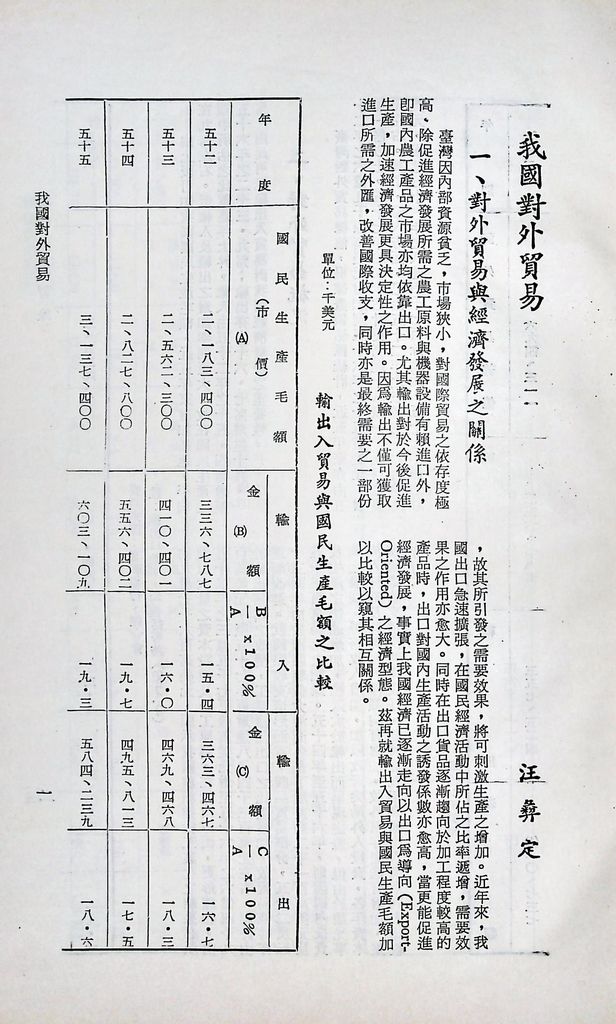 我國對外貿易
汪彝定
一、對外貿易與經濟發展之關係
臺灣因內部資源貧乏，市場狹小，對國際貿易之依存度極
高、除促進經濟發展所需之農工原料與機器設備有賴進口外，
卽國內農工產品之市場亦均依靠出口。尤其輸出對於今後促進
生產，加速經濟發展更具決定性之作用。因爲輸出不僅可獲取
進口所需之外匯，改善國際收支，同時亦是最終需要之一部份
，故其所引發之需要效果，將可刺激生產之增加。近年來，我
國出口急速擴張，在國民經濟活動中所佔之比率遞增，需要效
果之作用亦愈大。同時在出口貨品逐漸趨向於加工程度較高的
產品時，出口對國內生產活動之誘發係數亦愈高，當更能促進
經濟發展，事實上我國經濟已逐漸走向以出口爲導向（Export-
Oriented）之經濟型態。茲再就輸出入貿易與國民生產毛額加
以比較以窺其相互關係。
輸出入貿易與國民生產毛額之比較
單位：千美元
年度 國民生產毛額（市價）(A) 輸入 輸出
金額(B) B/A x100% 金額(C) C/A x100%
五十二 二、一八三、四〇〇 三三六、七八七 一五·四 三六三、四六七 一六·七
五十三 二、五六二、三〇〇 四一〇、四〇一 一六·〇 四六九、四六八 一八·三
五十四 二、八二七、八〇〇 五五六、四〇二 一九·七 四九五、八一三 一七·五
五十五 三、一三七、四〇〇 六〇三、一〇九 一九·三 五八四、二三九 一八·六
我國對外貿易
一